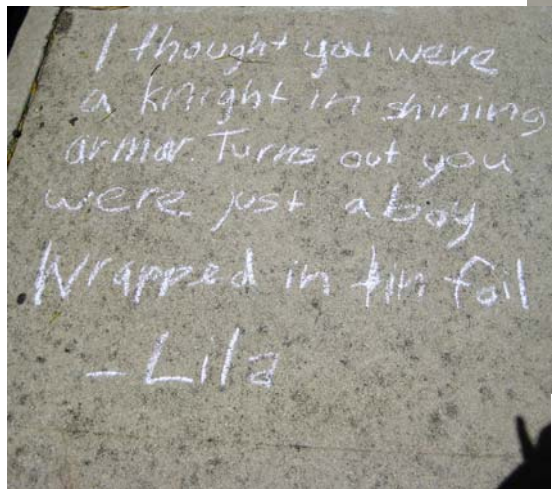 I thought you were
a knight in shining
armor. Turns out you
were just a boy
Wrapped in tin foil
- Lila